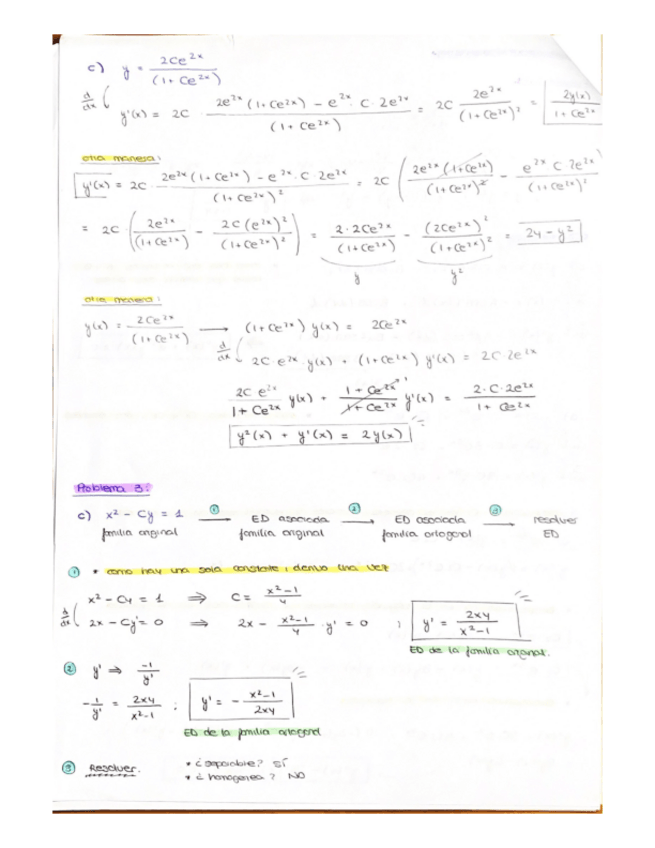 c) y = 2Ce^2x / (1 + Ce^2x)
d/dx ( y'(x) = 2C · 2e^2x (1 + Ce^2x) - e^2x · C · 2e^2x / (1 + Ce^2x) = 2C 2e^2x / (1 + Ce^2x)^2 = 2y(x) / 1 + Ce^2x
otra manera:
y'(x) = 2C · 2e^2x (1 + Ce^2x) - e^2x · C · 2e^2x / (1 + Ce^2x)^2 = 2C ( 2e^2x (1 + Ce^2x) / (1 + Ce^2x)^2 - e^2x C · 2e^2x / (1 + Ce^2x)^2
= 2C · ( 2e^2x / (1 + Ce^2x) - 2C (e^2x)^2 / (1 + Ce^2x)^2 ) = 2 · 2Ce^2x / (1 + Ce^2x) - (2Ce^2x)^2 / (1 + Ce^2x)^2 = 2y - y^2
y y^2
otra manera:
y(x) = 2Ce^2x / (1 + Ce^2x) → (1 + Ce^2x) y(x) = 2Ce^2x
d/dx ( 2C · e^2x · y(x) + (1 + Ce^2x) y'(x) = 2C · 2e^2x
2C e^2x / 1 + Ce^2x y(x) + 1 + Ce^2x / 1 + Ce^2x y'(x) = 2 · C · 2e^2x / 1 + Ce^2x
y^2(x) + y'(x) = 2y(x)
Problema 3:
c) x^2 - Cy = 1 ① → ED asociada ② → ED asociada ③ → resolver
familia original familia original familia ortogonal ED
① * como hay una sola constante, derivo una vez
x^2 - Cy = 1 ⇒ C = x^2-1 / y
d/dx ( 2x - Cy' = 0 ⇒ 2x - x^2-1 / y · y' = 0 ; y' = 2xy / x^2-1
ED de la familia original.
② y' ⇒ -1 / y'
- 1/y' = 2xy / x^2-1 ; y' = - x^2-1 / 2xy
ED de la familia ortogonal
③ Resolver. * ¿separable? SÍ
* ¿homogenea? NO